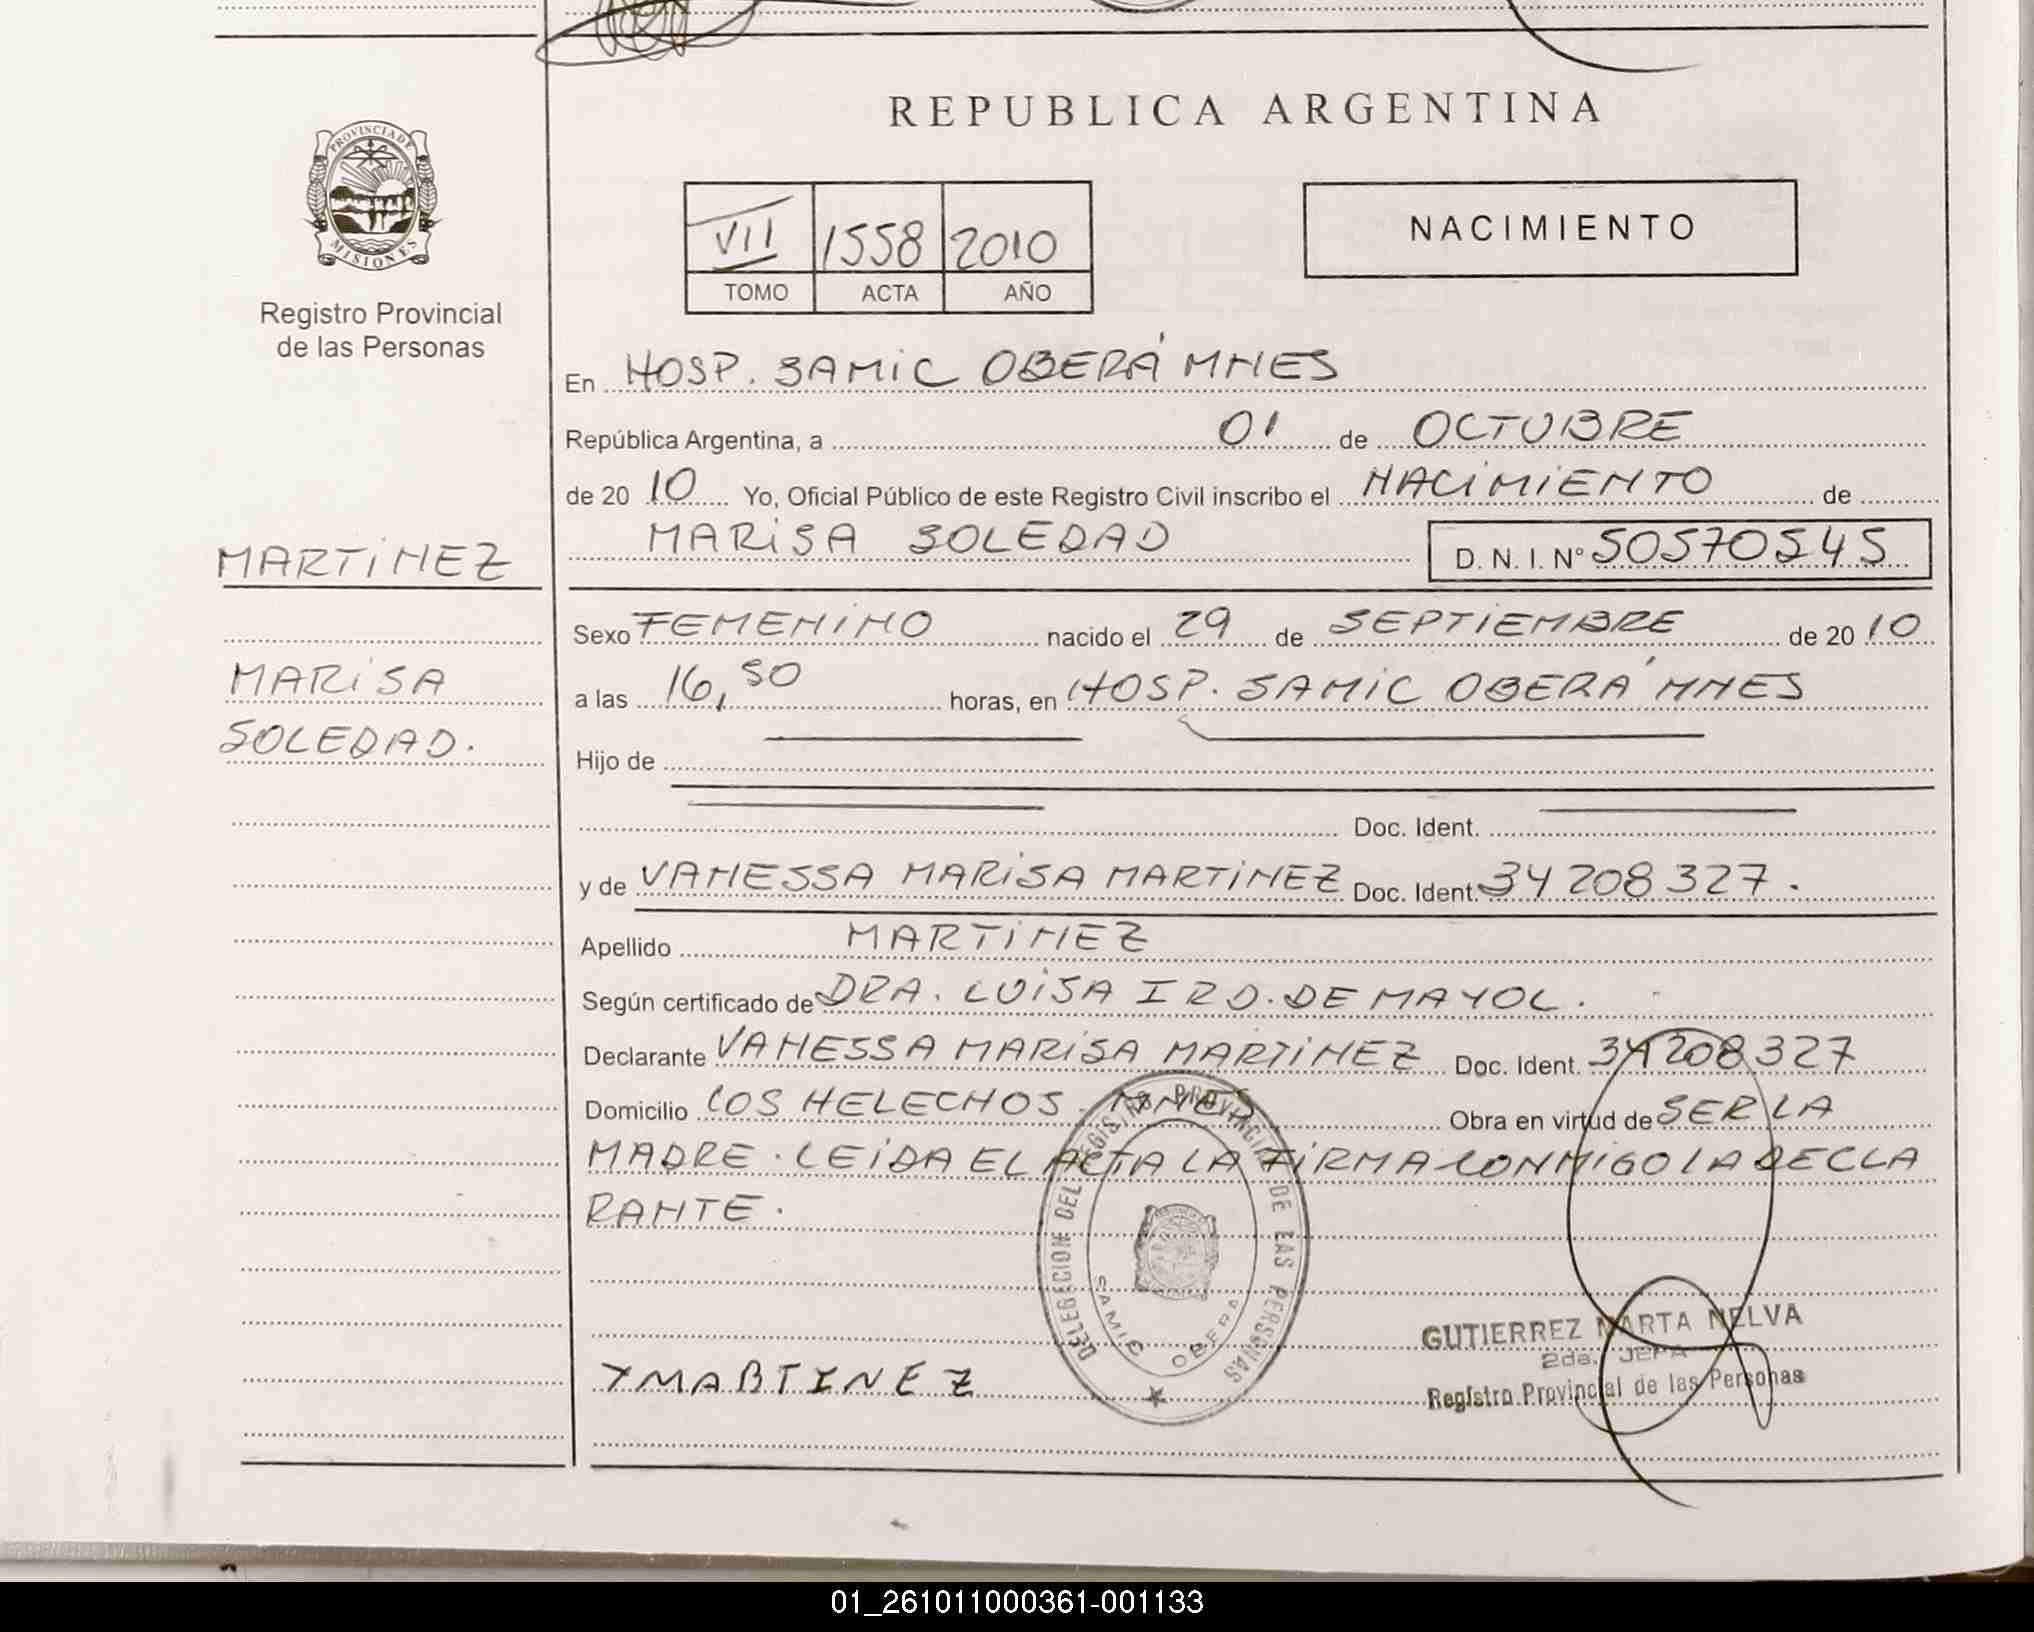 REPUBLICA ARGENTINA
PROVINCIA DE MISIONES
Registro Provincial
de las Personas
VII 1558 2010
TOMO ACTA AÑO
NACIMIENTO
En HOSP. SAMIC OBERÁ MNES
República Argentina, a 01 de OCTUBRE
de 2010 Yo, Oficial Público de este Registro Civil inscribo el NACIMIENTO de
MARTINEZ
MARISA SOLEDAD D. N. I. Nº 50570545
Sexo FEMENINO nacido el 29 de SEPTIEMBRE de 2010
MARISA
SOLEDAD.
a las 16,50 horas, en HOSP. SAMIC OBERÁ MNES
Hijo de
Doc. Ident.
y de VANESSA MARISA MARTINEZ Doc. Ident. 34208327.
Apellido MARTINEZ
Según certificado de DRA. LUISA IRD. DE MAYOL.
Declarante VANESSA MARISA MARTINEZ Doc. Ident. 34208327
Domicilio LOS HELECHOS. MNES Obra en virtud de SER LA
MADRE. LEIDA EL ACTA LA FIRMA CONMIGO LA DECLA
RANTE.
DELEGACION DEL REGISTRO PROVINCIAL DE LAS PERSONAS
SAMIC OBERA
GUTIERREZ MARTA NELVA
2da. JEFA
Registro Provincial de las Personas
YMARTINEZ
01_261011000361-001133